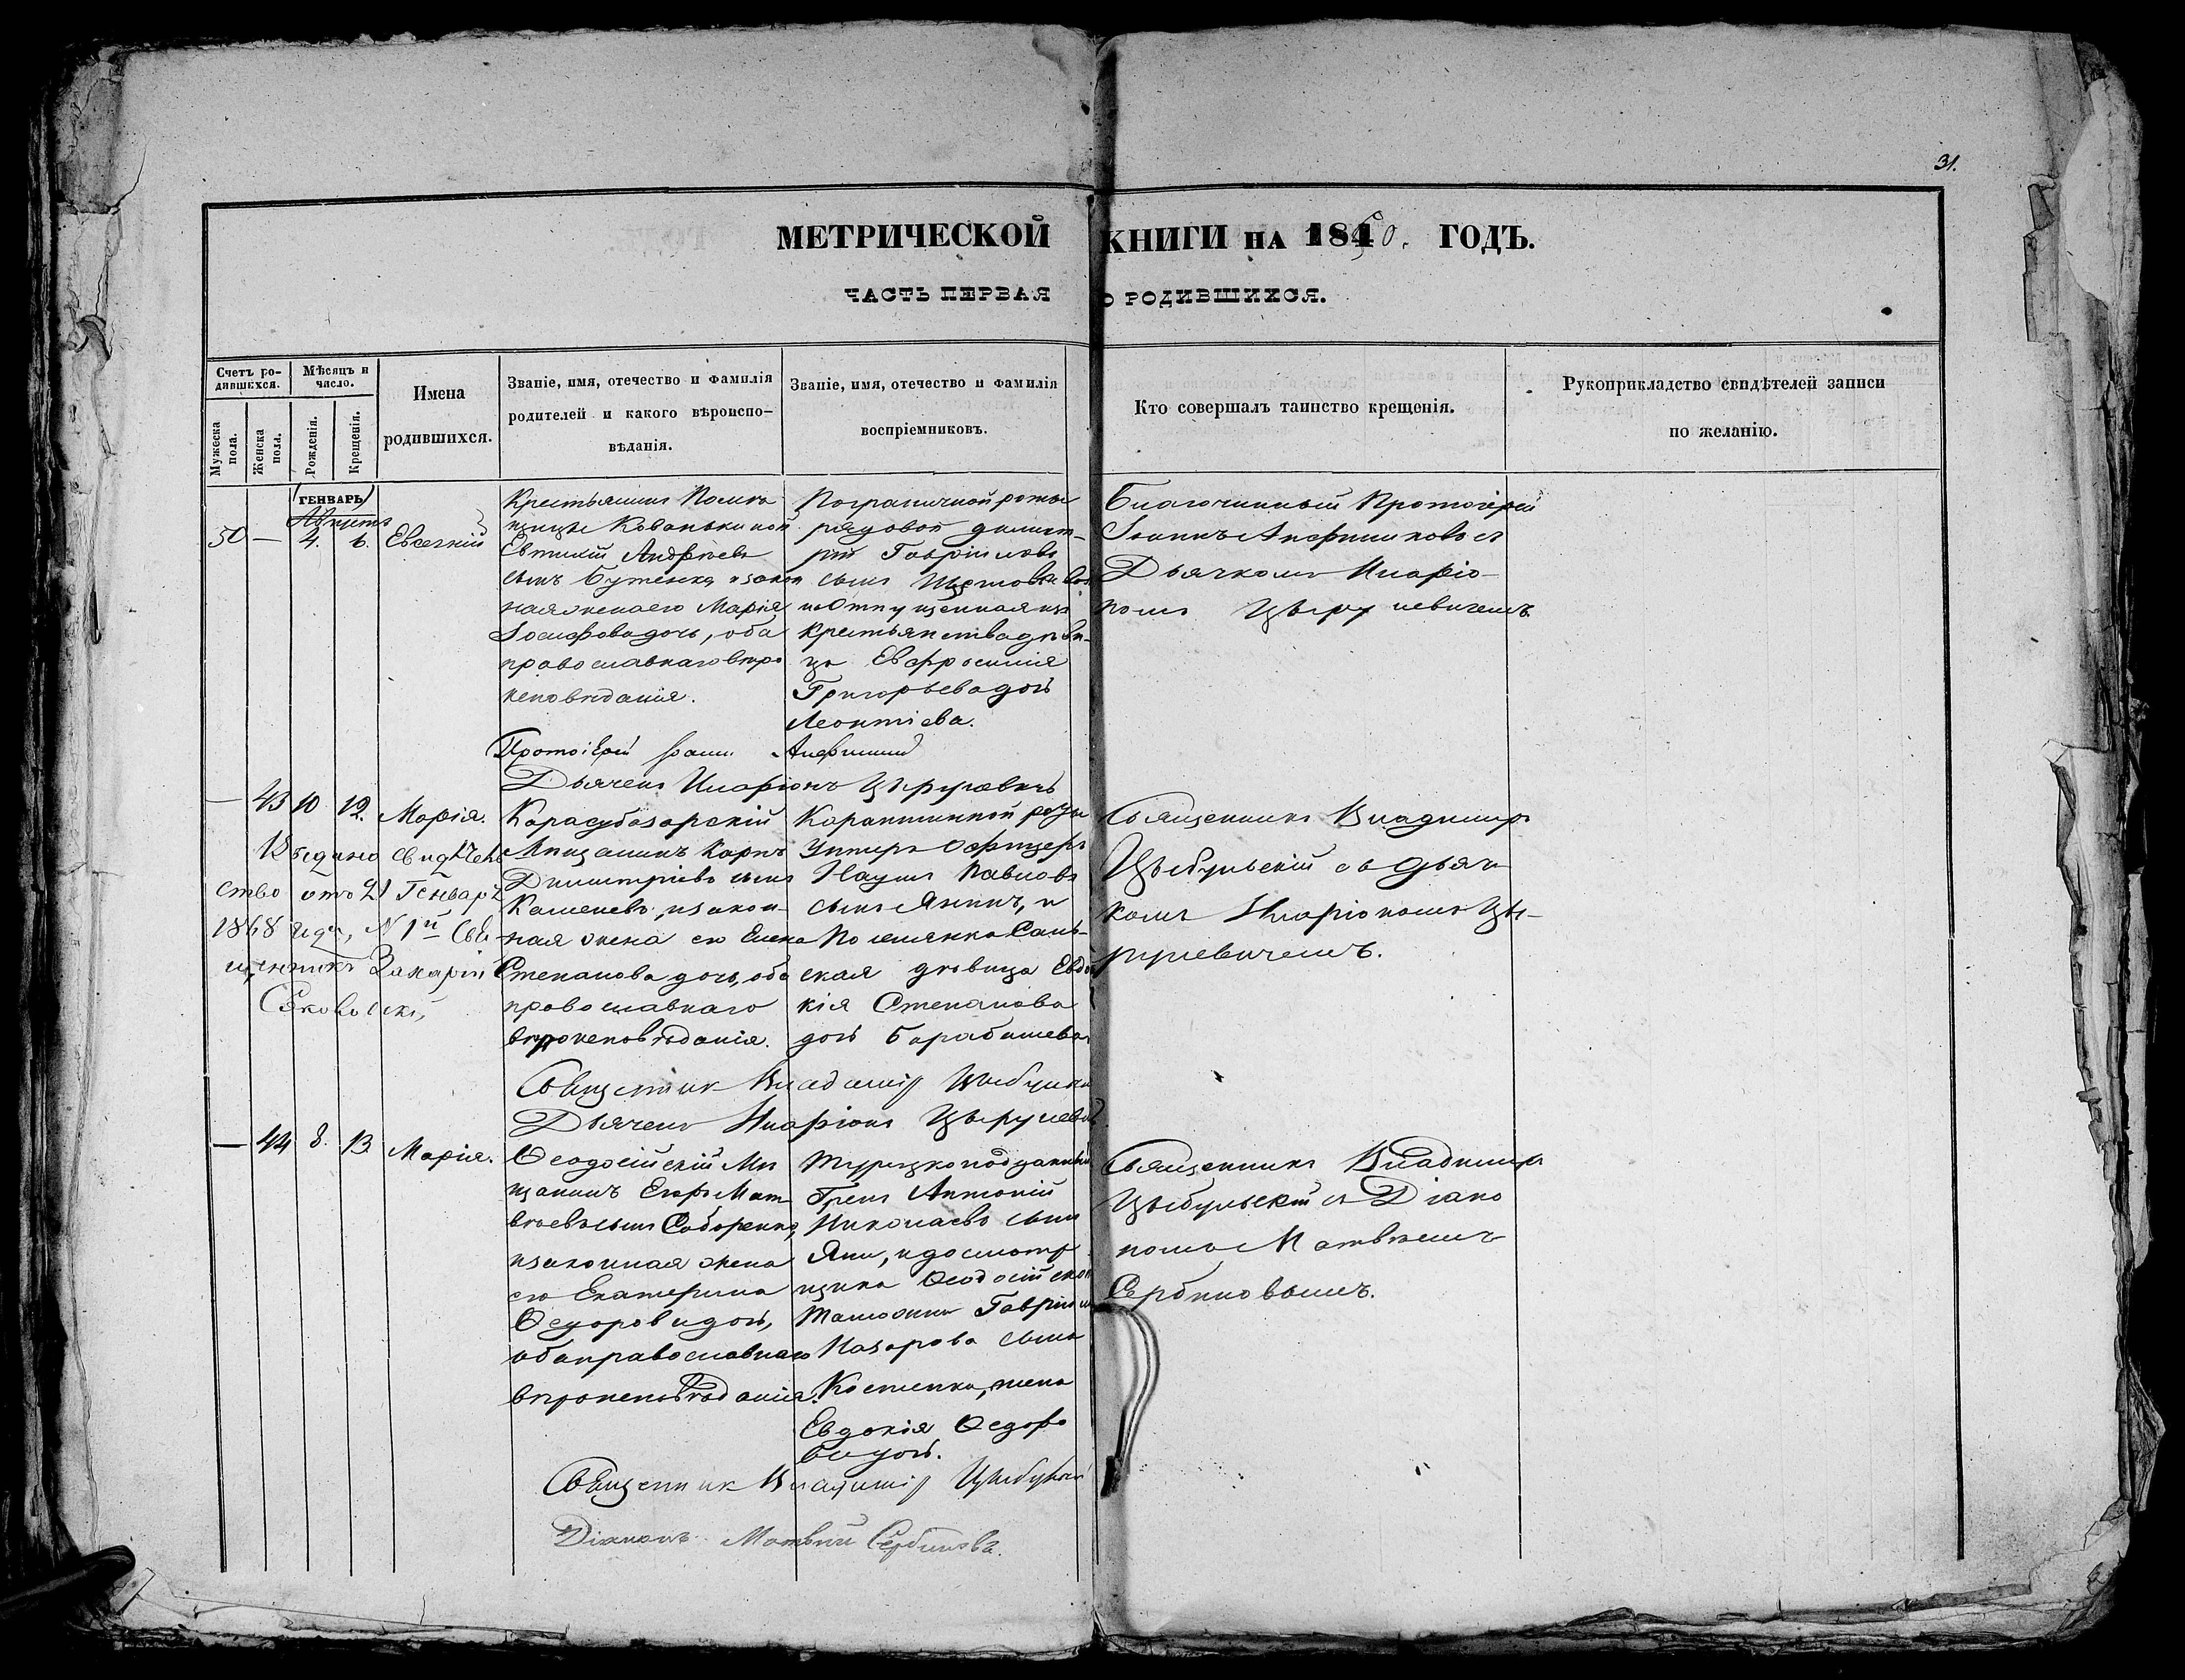 31.
МЕТРИЧЕСКОЙ КНИГИ НА 1850. ГОДЪ.
ЧАСТЬ ПЕРВАЯ О РОДИВШИХСЯ.
Счетъ родившихся.
Мужеска пола.
Женска пола.
Мѣсяцъ и число.
Рожденія.
Крещенія.
Имена
родившихся.
Званіе, имя, отечество и фамилія
родителей и какого вѣроиспо-
вѣданія.
Званіе, имя, отечество и фамилія
воспріемниковъ.
Кто совершалъ таинство крещенія.
Рукоприкладство свидѣтелей записи
по желанію.
ГЕНВАРЬ
Августъ
50 — 4. 6. Евсегній
Крестьянинъ Помѣ
щицы
Евтихій Андреевъ
сынъ Бутенко, и закон
ная жена его Марія
Іосифова дочь, оба
православнаго вѣро
исповѣданія.
Пограничной роты
рядовой димит-
рій Гавріиловъ
сынъ
и Отпущенная изъ
крестьянства дѣви-
ца Евфросинія
Григорьева дочь
Леонтіева.
Благочинный Протоіерей
Іоаннъ съ
Дьячкомъ Иларіо-
номъ Цѣрулевичемъ.
Протоіерей Іоаннъ
Дьячекъ Иларіонъ Цѣрулевичъ
— 43 10 12. Марія.
Выдано свидѣтель
ство отъ 21 Генваря
1868 года, N 1й Свя
щенникъ Захарій
Карасубазарскій
Мищанинъ Карпъ
Димитріевъ сынъ
Каменевъ, и закон-
ная жена его Елена
Степанова дочь, оба
православнаго
вѣроисповѣданія.
Карантинной роты
Унтеръ Офицеръ
Наумъ Павловъ
сынъ Янинъ, и
дѣвица Евдо
кія Степанова
дочь Барабашева
Священникъ Владиміръ
Цыбульскій съ Дьяч
комъ Иларіономъ Цѣ-
рулевичемъ.
Священникъ Владиміръ Цыбульскій
Дьячекъ Иларіонъ Цѣрулевичъ
— 44 8. 13. Марія.
Ѳеодосійскій Мѣ
щанинъ Егоръ Мат
вѣевъ сынъ Сидоренко,
и законная жена
его Екатерина
Ѳедорова дочь,
оба православнаго
вѣроисповѣданія.
Турецкоподданный
Грекъ Антоній
Николаевъ сынъ
Яни, и досмотр
щика Ѳеодосійской
Таможни Гавріила
Назарова сына
Костенка, жена
Евдокія Ѳедоро
ва дочь.
Священникъ Владиміръ
Цыбульскій съ Діако
номъ Матвѣемъ
Сербиновымъ.
Священникъ Владиміръ Цыбульскій
Діаконъ Матвѣй Сербиновъ.